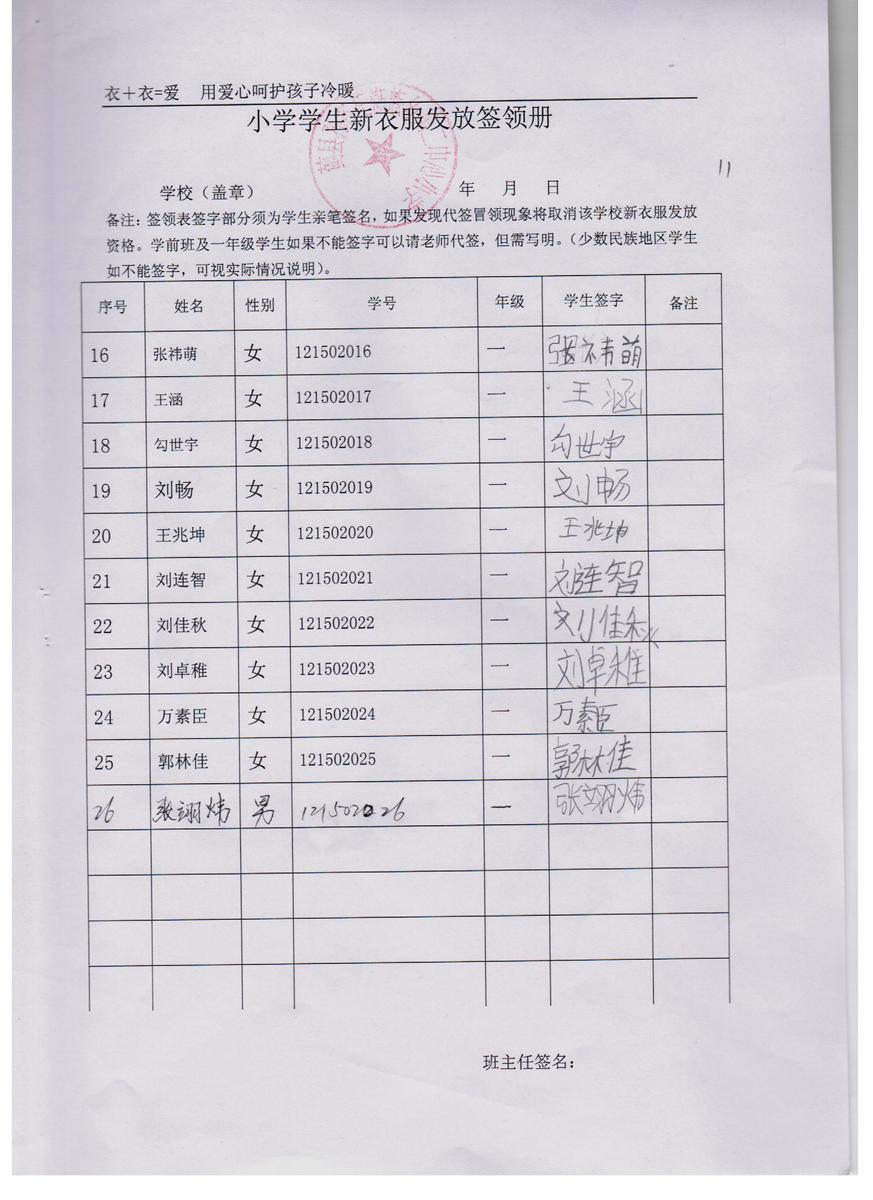 衣＋衣=爱 用爱心呵护孩子冷暖
小学学生新衣服发放签领册
11
学校（盖章） 年 月 日
备注：签领表签字部分须为学生亲笔签名，如果发现代签冒领现象将取消该学校新衣服发放
资格。学前班及一年级学生如果不能签字可以请老师代签，但需写明。（少数民族地区学生
如不能签字，可视实际情况说明）。
序号 姓名 性别 学号 年级 学生签字 备注
16 张祎萌 女 121502016 一 张祎萌
17 王涵 女 121502017 一 王涵
18 勾世宇 女 121502018 一 勾世宇
19 刘畅 女 121502019 一 刘畅
20 王兆坤 女 121502020 一 王兆坤
21 刘连智 女 121502021 一 刘连智
22 刘佳秋 女 121502022 一 刘佳秋
23 刘卓稚 女 121502023 一 刘卓稚
24 万素臣 女 121502024 一 万素臣
25 郭林佳 女 121502025 一 郭林佳
26 张翊炜 男 121502026 一 张翊炜
班主任签名：